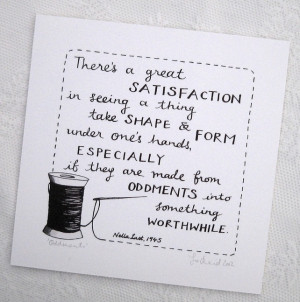 There's a great
SATISFACTION
in seeing a thing
take SHAPE & FORM
under one's hands,
ESPECIALLY
if they are made from
ODDMENTS into
something
WORTHWHILE.
Nella Last, 1945
"Oddments"